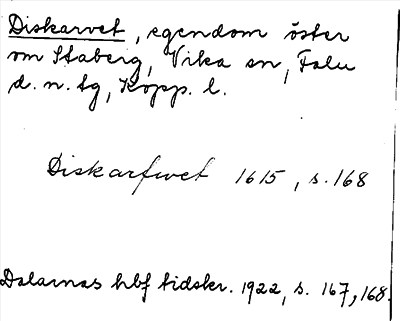 Diskarvet, egendom öster
om Staberg, Vika sn, Falu
d. n. tg, Kopp. l.
Diskarfwet 1615, s. 168
Dalarnas hbf tidskr. 1922, s. 167, 168.